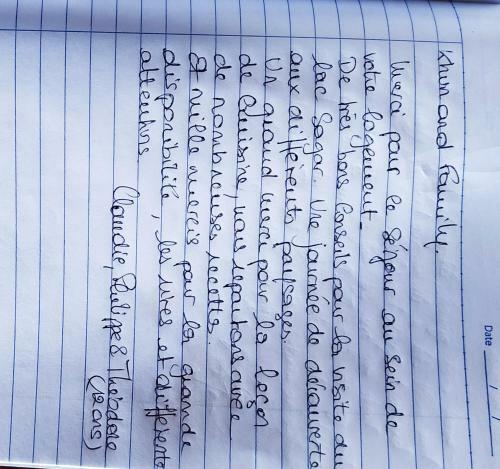 Date
Khun and Family,
Merci pour le séjour au sein de
votre logement.
De très bons conseils pour la visite du
lac Sagar. Une journée de découverte
aux différents paysages.
Un grand merci pour la leçon
de cuisine, nous repartons avec
de nombreuses recettes.
Et mille mercis pour la grande
disponibilité, les rires et différentes
attentions.
Claudie, Philippe & Théodore
(12 ans)